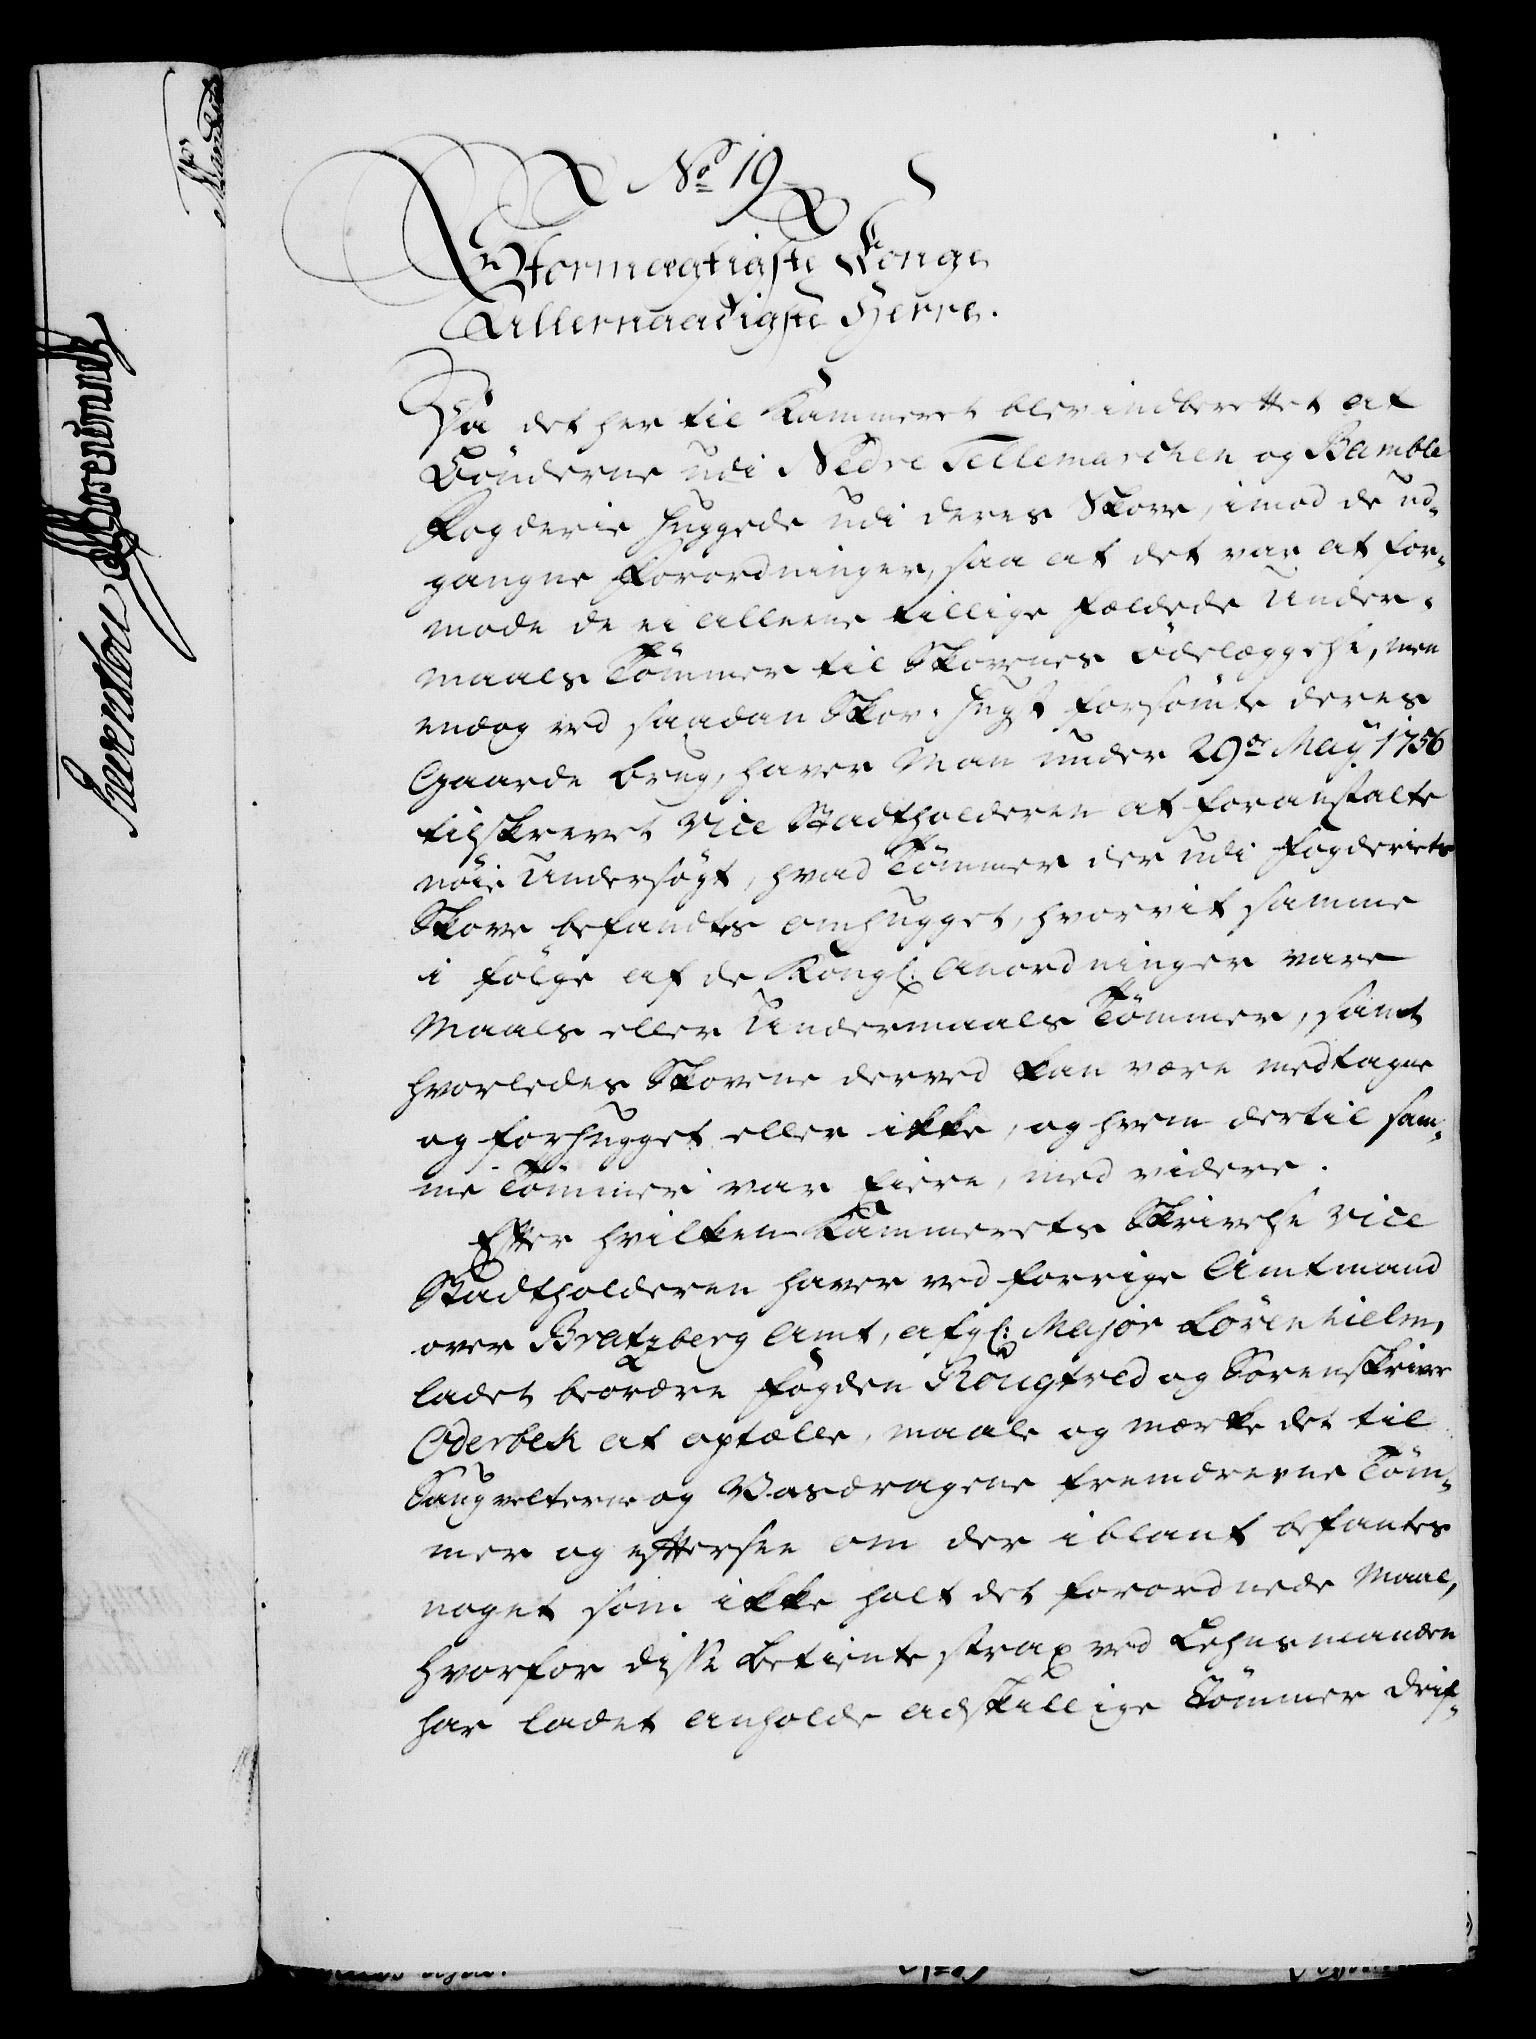 No 19
Stormægtigste Konge
Allernaadigste Herre.
Da det her til Kammeret blev indberettet at
Bönderne udi Nedre Tellemarchen og Bamble
Fogderie huggede udi deres Skove, imod de ud-
gangne Forordninger, saa at det var at for-
mode de ei alleene tillige fældede Under-
maals Tömmer til Skovenes ödelæggelse, men
endog ved saadan Skov-hugst forsömte deres
Gaarde brug, haver Man under 29de Maÿ 1756
tilskrevet Vice Stadtholderen at foranstalte
nöie Undersögt, hvad Tömmer der udi Fogderiets
Skove befandtes omhugget, hvorvit samme
i fölge af de Kongl. Anordninger vare
Maals eller Undermaals Tömmer, samt
hvorledes Skovene derved kan være medtagne
og forhugget eller ikke, og hvem dertil sam-
me Tömmer var Eiere, med videre.
Efter hvilken Kammerets Skrivelse Vice
Stadtholderen haver ved forrige Amtmand
over Bratzberg Amt, afgl: Major Lövenhielm,
ladet beordre Fogden Rougtved og Sorenskriver
Oderbek at optælle, maale og mærke det til
Saugvelterne og Vasdragene fremdrevne Töm-
mer og eftersee om der iblant befantes
noget som ikke holt det forordnede Maal,
hvorfor disse Betiente strax ved Lehnsmanden
har ladet anholde adskillige Tömmer drif-